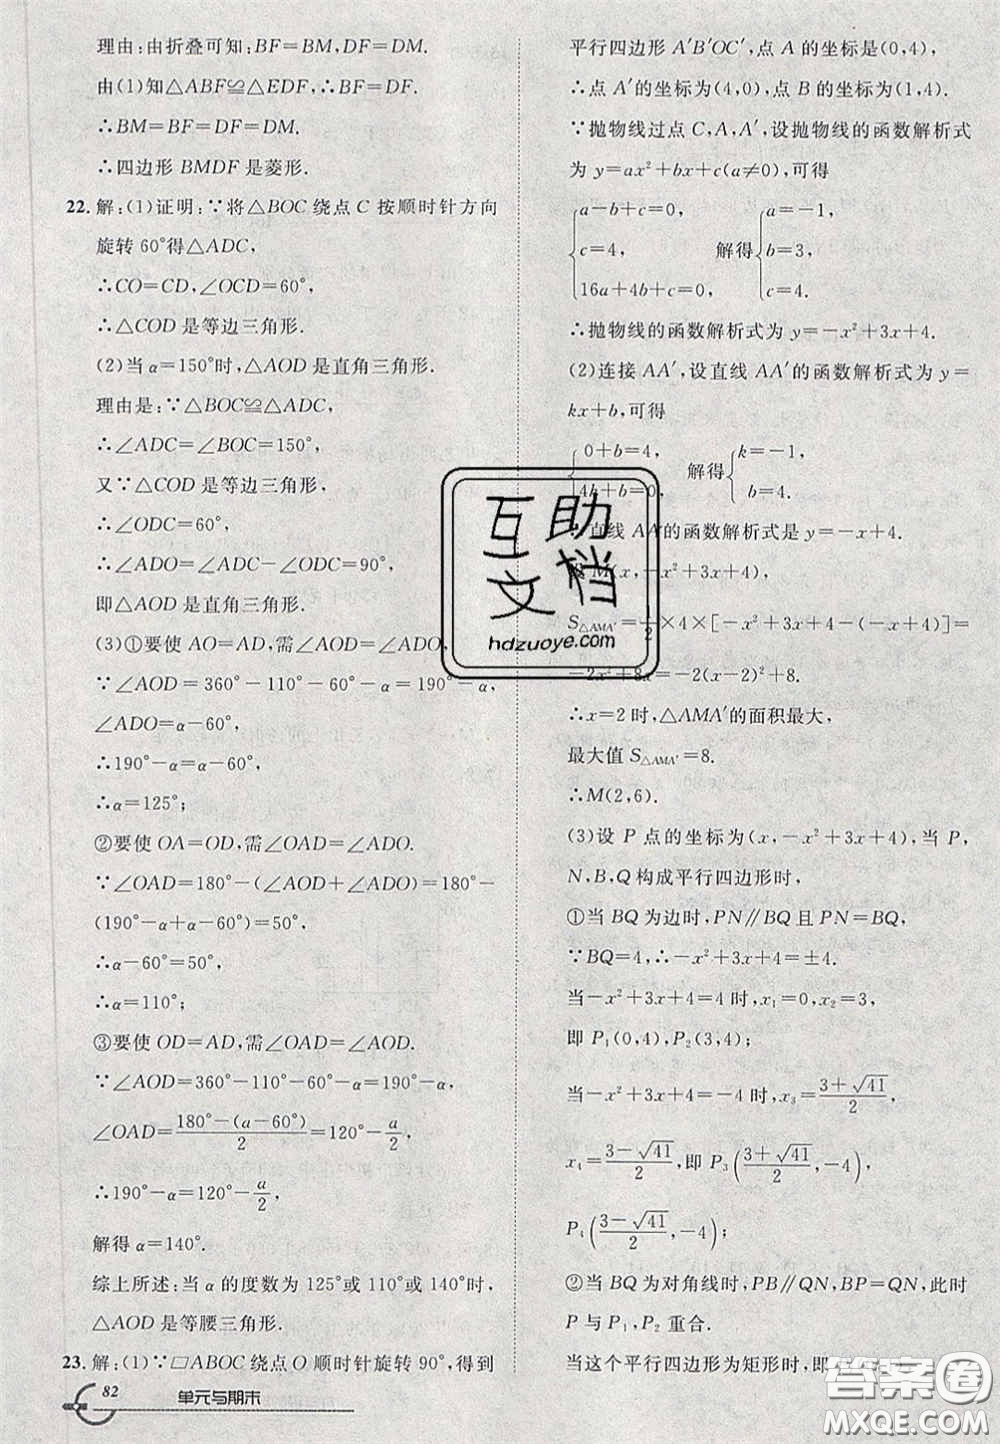 理由:由折叠可知:BF=BM,DF=DM.
由(1)知△ABF≌△EDF,∴BF=DF.
∴BM=BF=DF=DM.
∴四边形 BMDF 是菱形.
22. 解:(1)证明:∵将△BOC 绕点 C 按顺时针方向
旋转 60°得△ADC,
∴CO=CD,∠OCD=60°,
∴△COD 是等边三角形.
(2)当 α=150°时,△AOD 是直角三角形.
理由是:∵△BOC≌△ADC,
∴∠ADC=∠BOC=150°,
又∵△COD 是等边三角形,
∴∠ODC=60°,
∴∠ADO=∠ADC-∠ODC=90°,
即△AOD 是直角三角形.
(3)①要使 AO=AD,需∠AOD=∠ADO,
∵∠AOD=360°-110°-60°-α=190°-α,
∠ADO=α-60°,
∴190°-α=α-60°,
∴α=125°;
②要使 OA=OD,需∠OAD=∠ADO.
∵∠OAD=180°-(∠AOD+∠ADO)=180°-
(190°-α+α-60°)=50°,
∴α-60°=50°,
∴α=110°;
③要使 OD=AD,需∠OAD=∠AOD.
∵∠AOD=360°-110°-60°-α=190°-α,
∠OAD=\frac{180°-(α-60°)}{2}=120°-\frac{a}{2},
∴190°-α=120°-\frac{α}{2},
解得 α=140°.
综上所述:当 α 的度数为 125°或 110°或 140°时,
△AOD 是等腰三角形.
23. 解:(1)∵□ABOC 绕点 O 顺时针旋转 90°,得到
82 单元与期末
平行四边形 A′B′OC′,点 A 的坐标是(0,4),
∴点 A′的坐标为(4,0),点 B 的坐标为(1,4).
∵抛物线过点 C,A,A′,设抛物线的函数解析式
为 y=ax²+bx+c(a≠0),可得
{a-b+c=0, {a=-1,
c=4, 解得 b=3,
16a+4b+c=0, c=4.
∴抛物线的函数解析式为 y=-x²+3x+4.
(2)连接 AA′,设直线 AA′的函数解析式为 y=
kx+b,可得
{0+b=4, {k=-1,
4k+b=0, 解得 b=4.
直线 AA′的函数解析式是 y=-x+4.
M(x,-x²+3x+4),
S△AMA′=\frac{1}{2}×4×[-x²+3x+4-(-x+4)]=
-2x²+8x=-2(x-2)²+8.
∴x=2 时,△AMA′的面积最大,
最大值 S△AMA′=8.
∴M(2,6).
(3)设 P 点的坐标为(x,-x²+3x+4),当 P,
N,B,Q 构成平行四边形时,
①当 BQ 为边时,PN∥BQ 且 PN=BQ,
∵BQ=4,∴-x²+3x+4=±4.
当-x²+3x+4=4 时,x₁=0,x₂=3,
即 P₁(0,4),P₂(3,4);
当-x²+3x+4=-4 时,x₃=\frac{3+\sqrt{41}}{2},
x₄=\frac{3-\sqrt{41}}{2},即 P₃(\frac{3+\sqrt{41}}{2},-4),
P₄(\frac{3-\sqrt{41}}{2},-4);
②当 BQ 为对角线时,PB∥QN,BP=QN,此时
P 与 P₁,P₂ 重合.
当这个平行四边形为矩形时,即
互助
文档
hdzuoye.com
答案圈
MXQE.COM